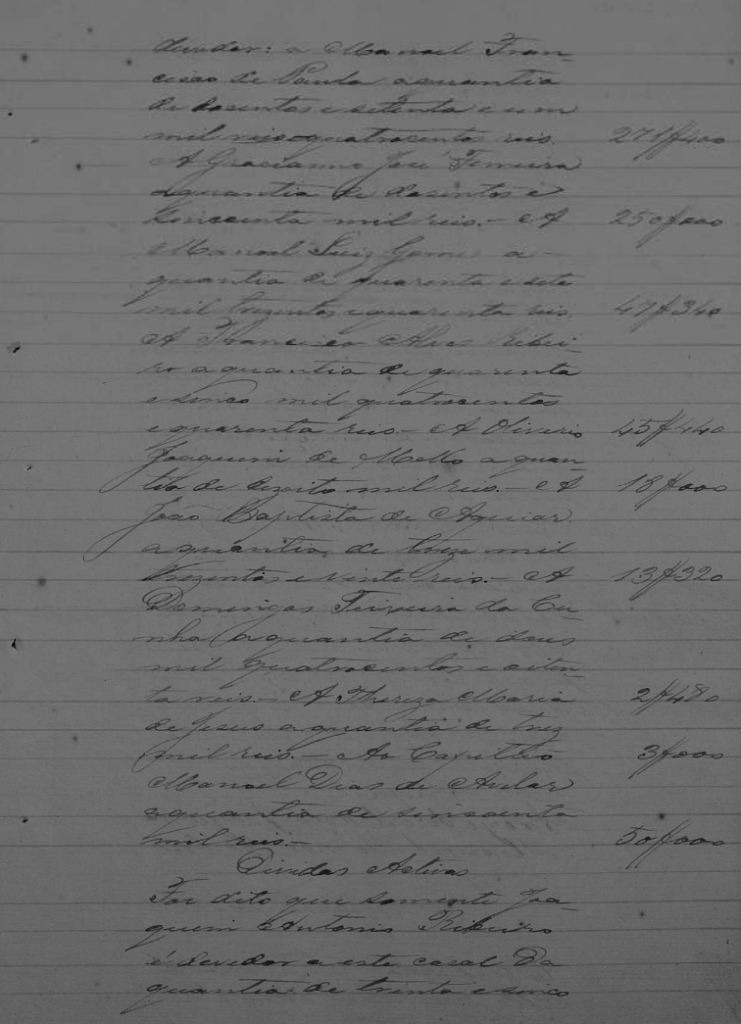 devedor: a Manoel Fran-
cisco de Paula a quantia
de dosentos e setenta e um
mil reis e quatrocentos reis. 271$400
A Gracianno José Ferreira
a quantia de dosentos e
sincoenta mil reis. - A 250$000
Manoel Luiz Gomes a
quantia de quarenta e sete
mil trezentos e quarenta reis. 47$340
A Francisco Alves Ribei-
ro a quantia de quarenta
e sinco mil quatrocentos
e quarenta reis. - A Oliverio 45$440
Joaquim de Mello a quan-
tia de dezoito mil reis. - A 18$000
João Baptista de Aguiar
a quantia de treze mil
trezentos e vinte reis. - A 13$320
Domingos Teixeira da Cu-
nha a quantia de dous
mil quatrocentos e oiten-
ta reis. - A Thereza Maria 2$480
de Jesus a quantia de trez
mil reis. - Ao Capitão 3$000
Manoel Dias de Avelar
a quantia de sincoenta
mil reis. - 50$000
Dividas Activas
Foi dito que somente Joa-
quim Antonio Ribeiro
é devedor a este casal da
quantia de trinta e sinco